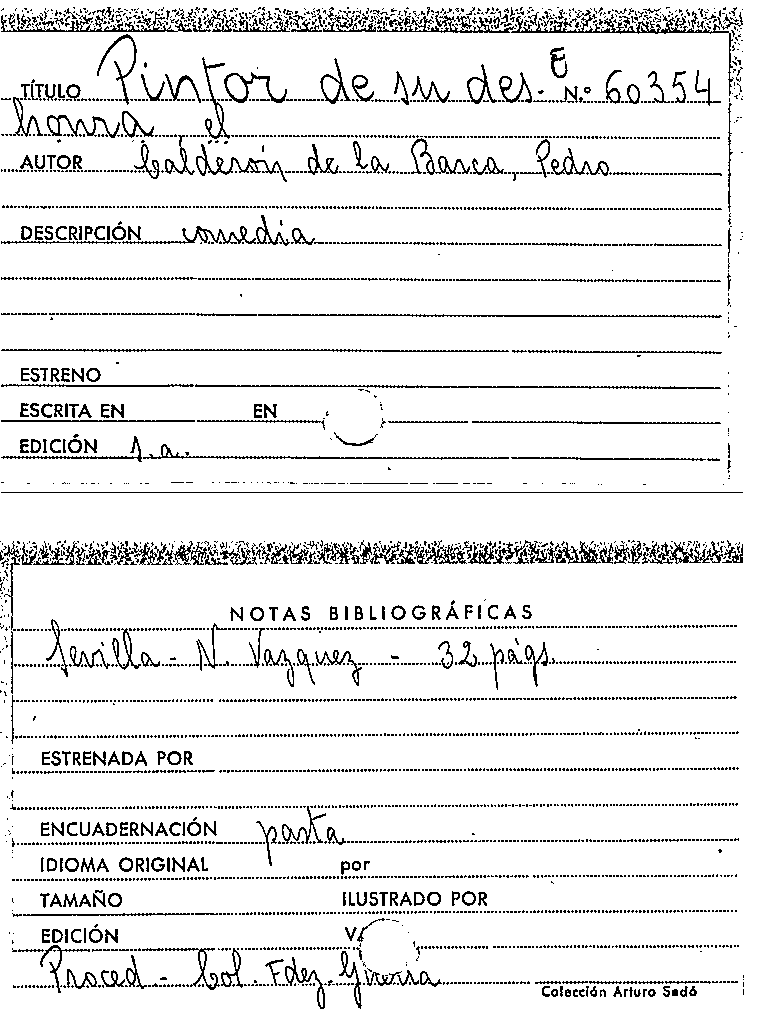 E
TÍTULO Pintor de su des- N.º 60354
honra, el
AUTOR Calderón de la Barca, Pedro
DESCRIPCIÓN comedia
ESTRENO
ESCRITA EN EN
EDICIÓN s.a.
NOTAS BIBLIOGRÁFICAS
Sevilla - N. Vazquez - 32 págs.
ESTRENADA POR
ENCUADERNACIÓN pasta
IDIOMA ORIGINAL por
TAMAÑO ILUSTRADO POR
EDICIÓN
Proced - Col. Fdez. Guerra
Colección Arturo Sedó